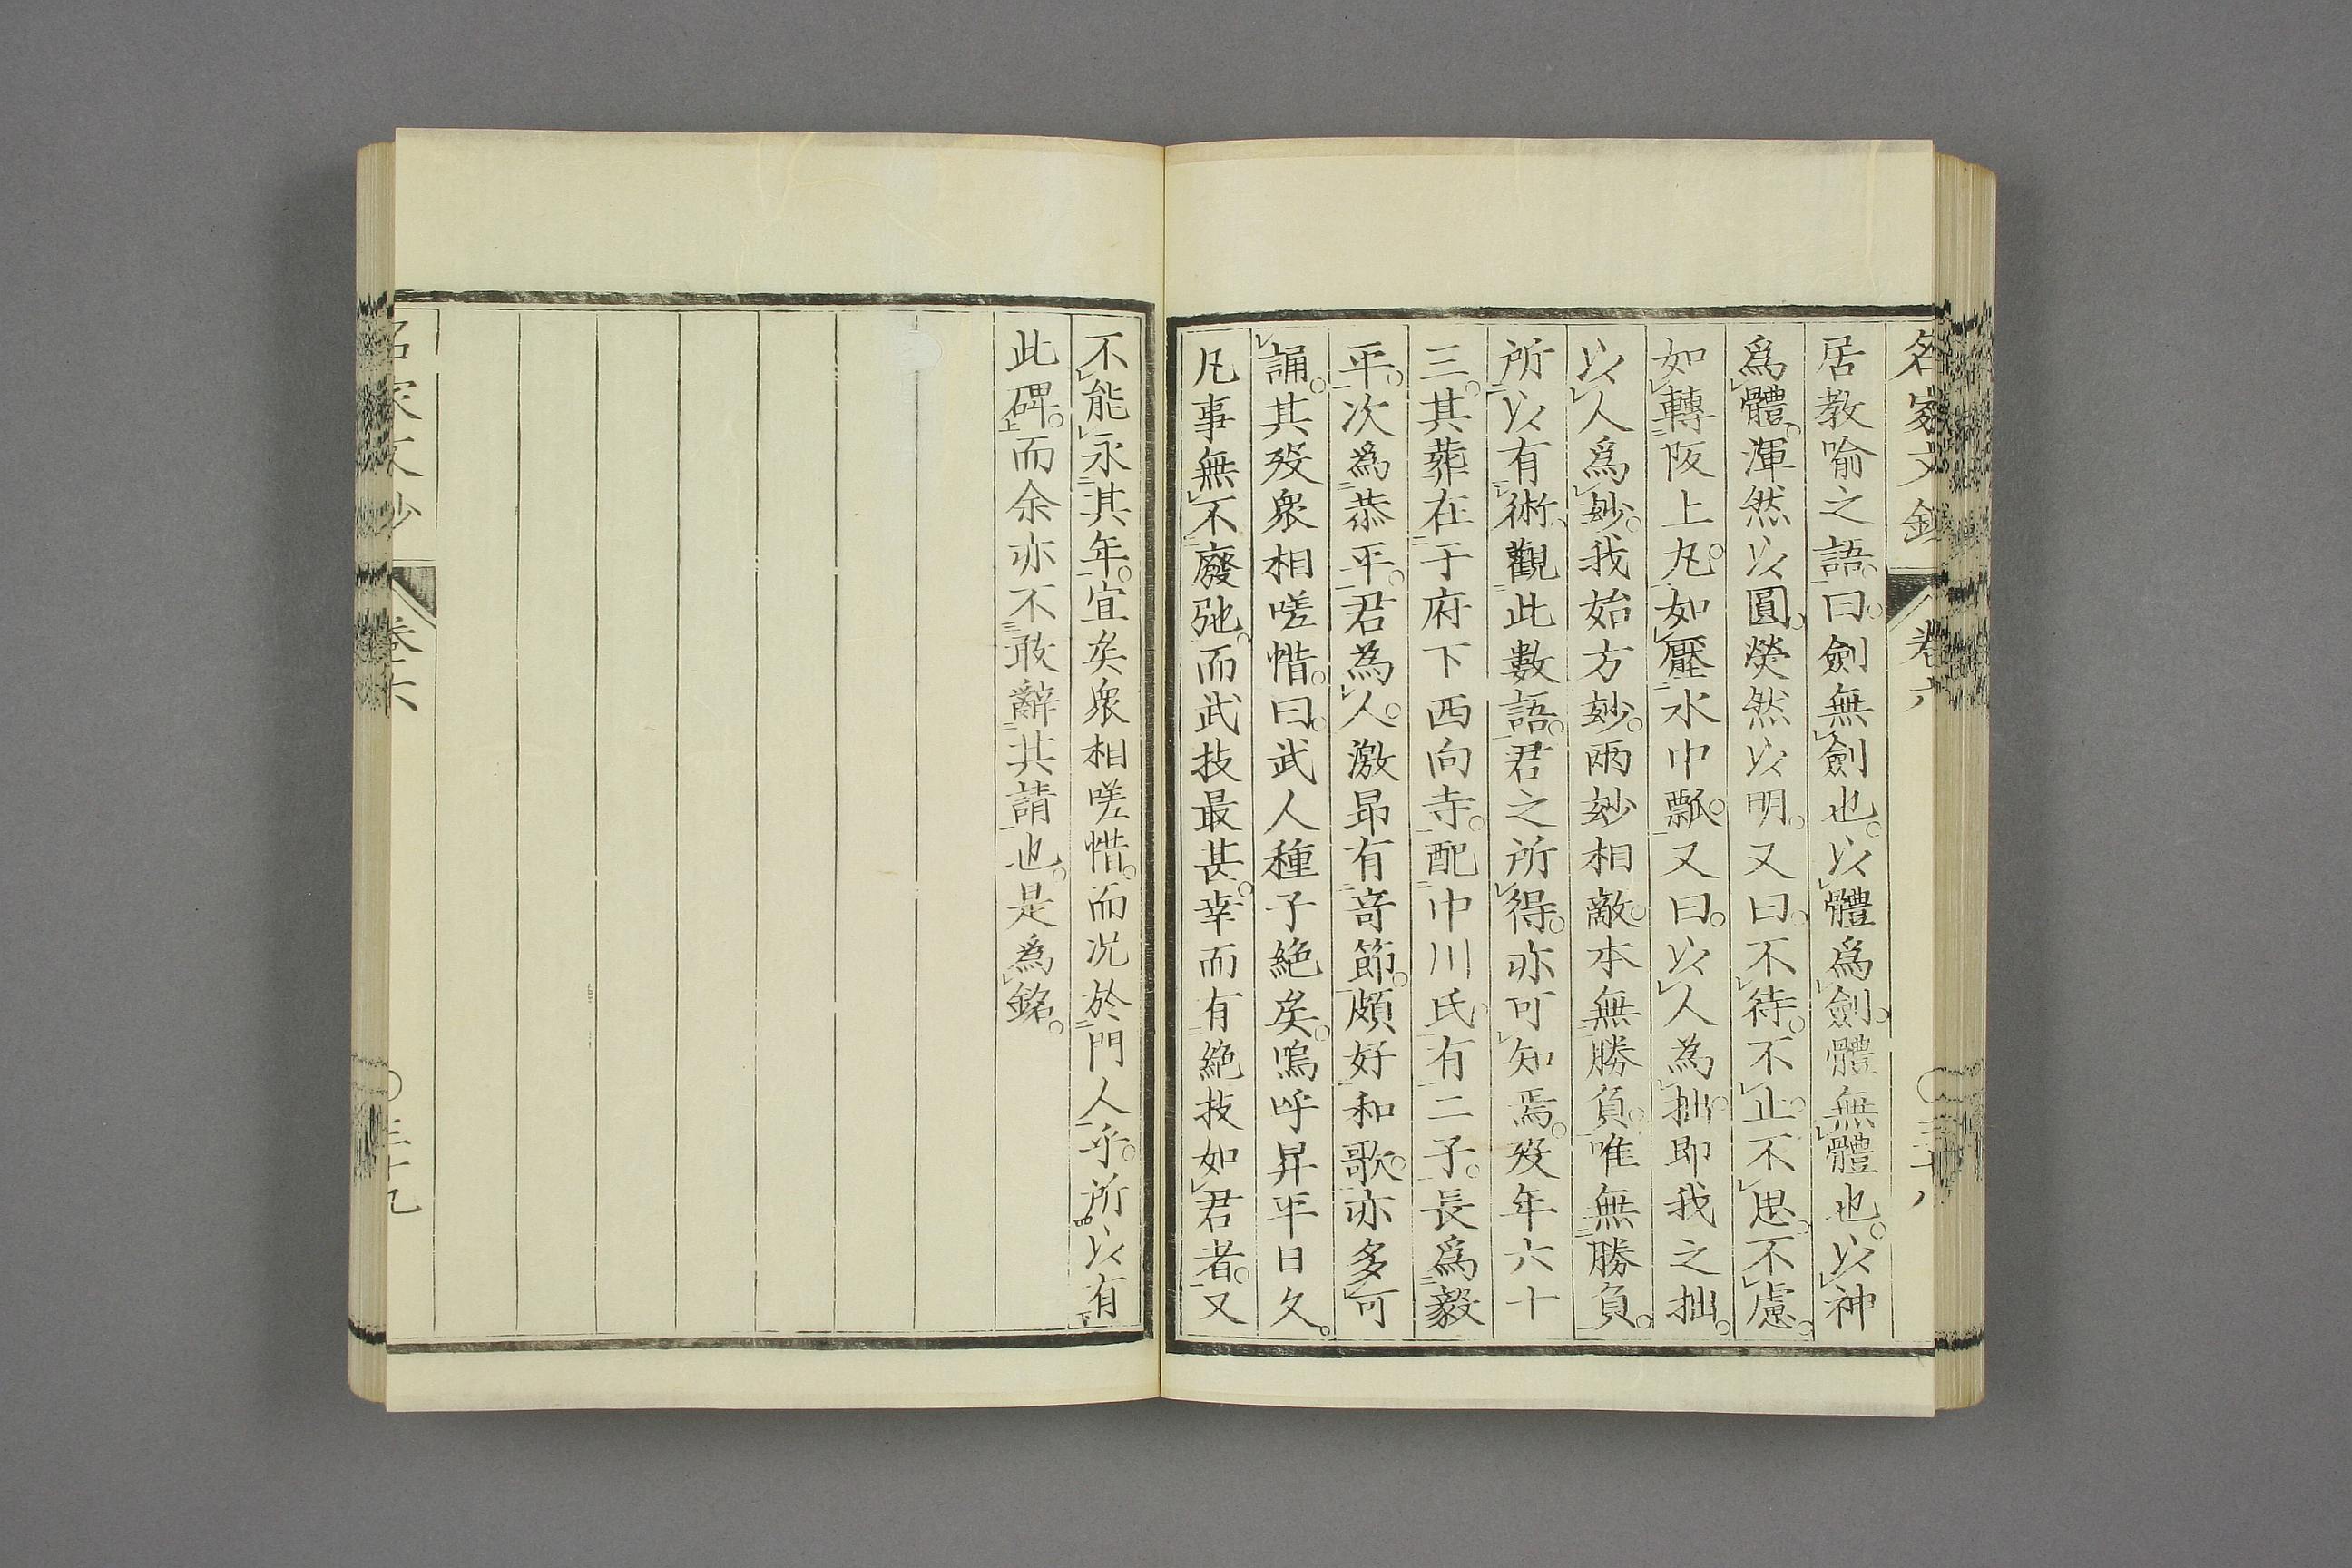 名家文鈔 卷六 〇三十八
居教喻之語。曰。劍無劍也。以體爲劍。體無體也。以神
爲體。渾然以圓。熒然以明。又曰。不待。不止。不思。不慮。
如轉阪上丸。如壓水中瓢。又曰。以人為拙。即我之拙。
以人爲妙。我始方妙。兩妙相敵。本無勝負。唯無勝負。
所以有術。觀此數語。君之所得。亦可知焉。歿年六十
三。其葬在于府下西向寺。配中川氏。有二子。長爲毅
平。次為恭平。君為人。激昂有奇節。頗好和歌。亦多可
誦。其歿衆相嗟惜。曰。武人種子絶矣。嗚呼昇平日久。
凡事無不廢弛。而武技最甚。幸而有絶技如君者。又
不能永其年。宜矣衆相嗟惜。而況於門人乎。所以有
此碑。而余亦不敢辭其請也。是爲銘。
名家文鈔 卷六 〇三十九